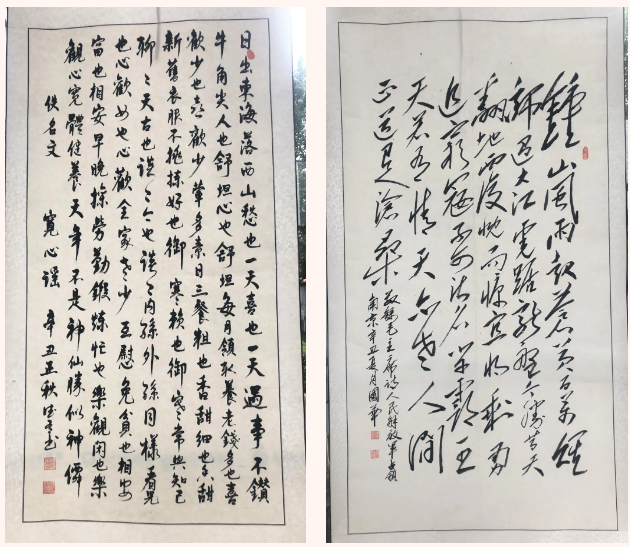 日出東海落西山愁也一天喜也一天遇事不鑽
牛角尖人也舒坦心也舒坦每月領取養老錢多也喜
歡少也喜歡少葷多素日三餐粗也香甜細也香甜
新舊衣服不挑揀好也御寒賴也御寒常與知己
聊聊天古也談談今也談談内孫外孫同樣看兒
也心歡女也心歡全家老少互慰勉貧也相安
富也相安早晚操勞勤鍛煉忙也樂觀閑也樂
觀心寬體健養天年不是神仙勝似神仙
佚名文 寬心謠 辛丑正秋
鍾山風雨起蒼黃百萬雄
師過大江虎踞龍盤今勝昔天
翻地覆慨而慷宜將剩勇
追窮寇不可沽名學霸王
天若有情天亦老人間
正道是滄桑
敬錄毛主席詩人民解放軍占領
南京辛丑夏月國華